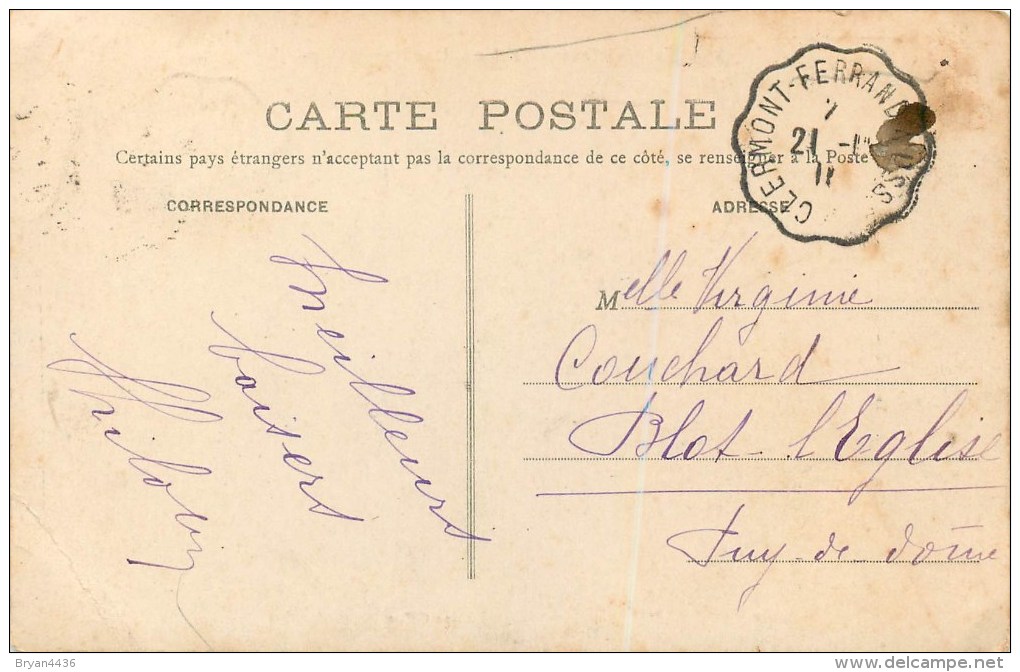 CARTE POSTALE
Certains pays étrangers n'acceptent pas la correspondance de ce côté, se renseigner à la Poste
CORRESPONDANCE
ADRESSE
CLERMONT-FERRAND
21
11
Meilleurs
baisers
Melle Virginie
Couchard
Blot-l'Eglise
Puy-de-dôme
Bryan4436
delcampe.net